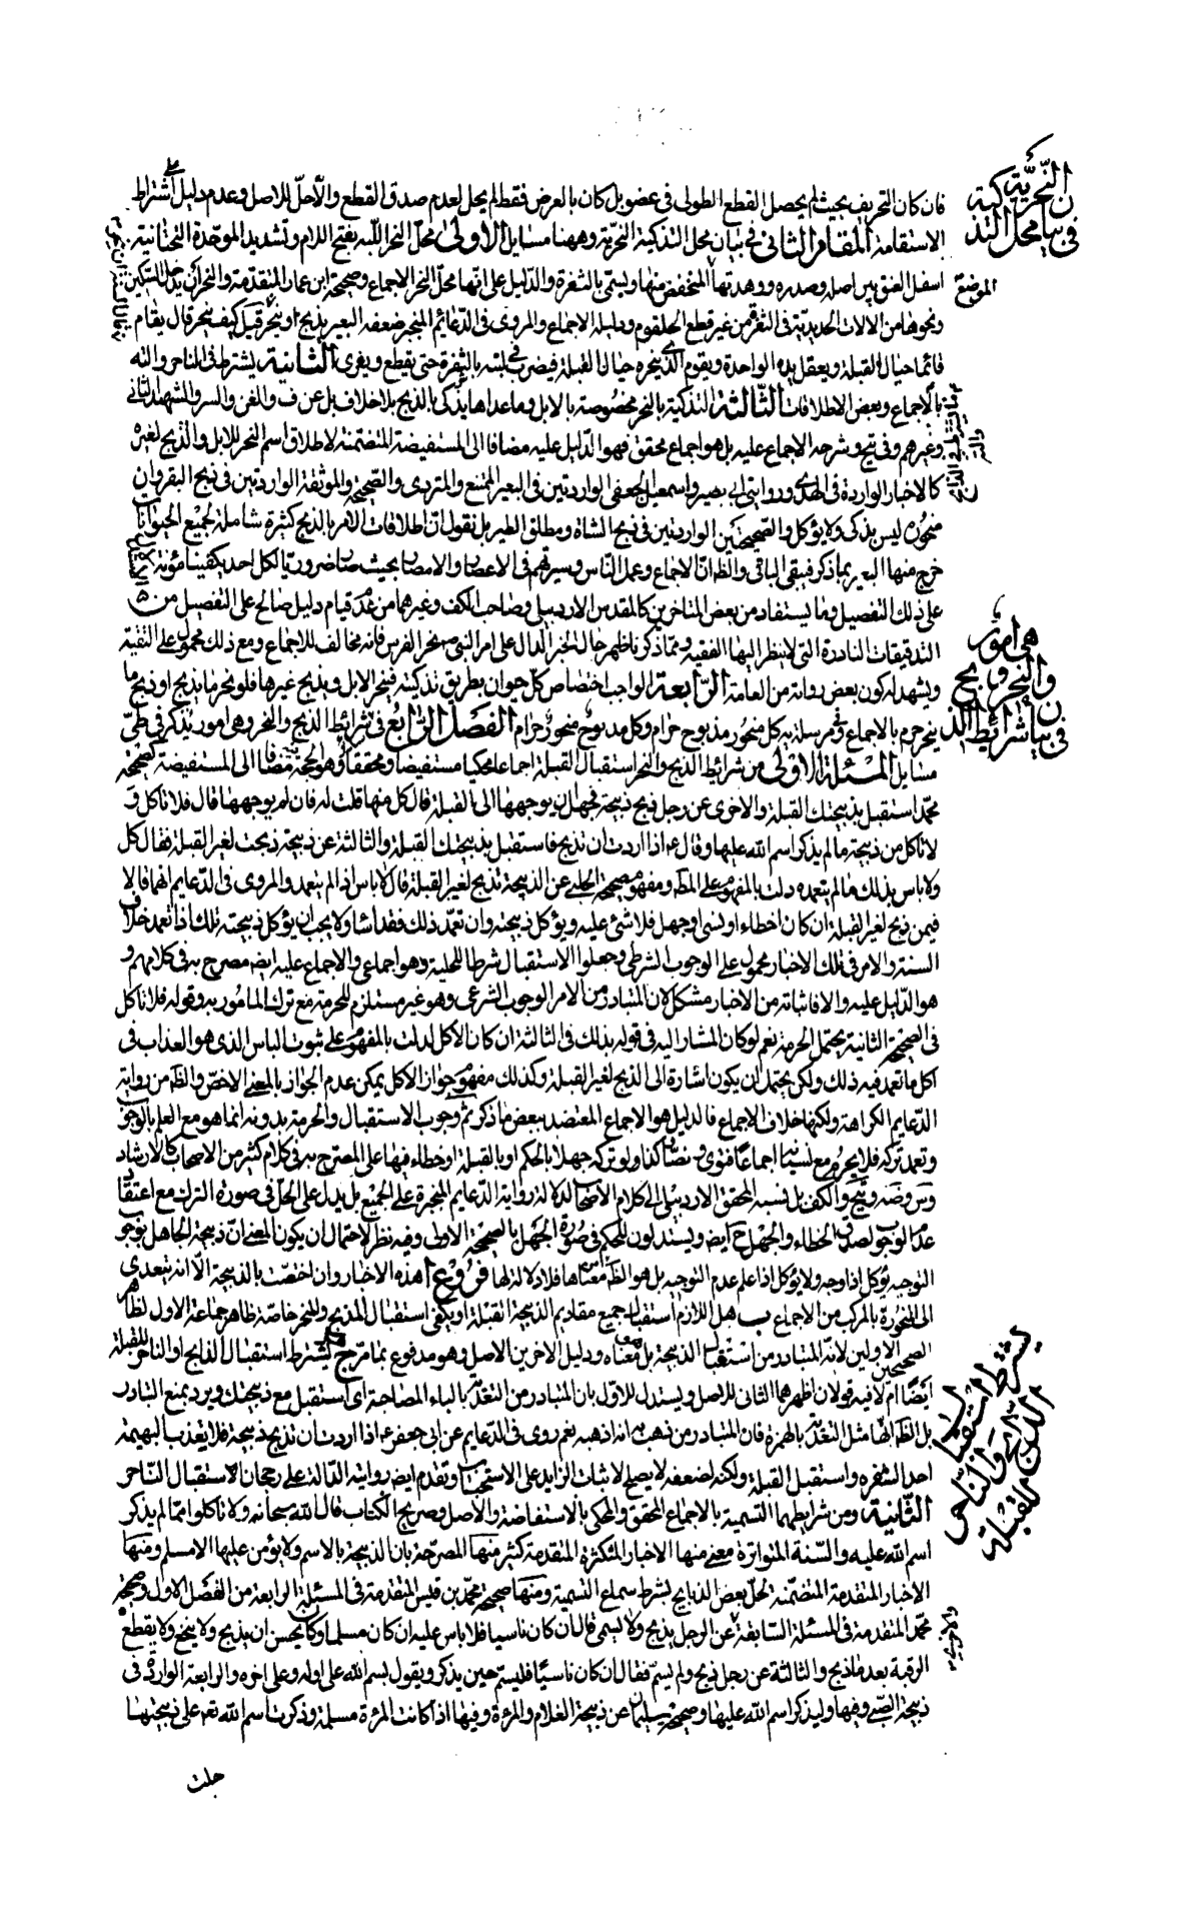 فان كان التحريف بحيث لم يحصل القطع الطولى فى عضو بل كان بالعرض فقط لم يحل لعدم صدق القطع والا حل للاصل وعدم دليل على اشتراط
الاستقامة المقام الثانى فى بيان محل التذكية النحرية وههنا مسايل الاولى محل النحر اللبة بفتح اللام وتشديد الموحدة التحتانية
اسفل العنق بين اصله وصدره ووهدتها الموضع المنخفض منها ويسمى بالثغرة والدليل على انها محل النحر الاجماع وصحيحة ابن عمار المتقدمة والنحر ان يدخل السكين
ونحوها من الالات الحديدية فى الثغرة من غير قطع الحلقوم ودليله الاجماع والمروى فى الدعائم المنجبر ضعفه البعير يذبح او ينحر قيل كيف ينحر قال يقام
قائما حيال القبلة ويعقل يده الواحدة ويقوم الذى ينحره حيال القبلة فيضرب فى لبته بالشفرة حتى يقطع ويفرى الثانية يشترط فى الناحر والته
بالاجماع وبعض الاطلاقات الثالثة التذكية بالنحر مخصوصة بالابل وما عداها يذكى بالذبح بلا خلاف بل عن ف والغنى والسرائر والشهيد الثانى
وغيرهم وفى شرحه الاجماع عليه بل هو اجماع محقق فهو الدليل عليه مضافا الى المستفيضة المتضمنة لاطلاق اسم النحر للابل والذبح لغيره
كالاخبار الواردة فى الهدى وروايتى ابى بصير واسمعيل الجعفى الواردتين فى البعير الممتنع والمتردى والصحيحة والموثقة الواردتين فى ذبح البقر وان
منحور ليس بذكى ولا يؤكل والصحيحتين الواردتين فى ذبح الشاة ومطلق الطير بل نقول ان اطلاقات الامر بالذبح كثيرة شاملة لجميع الحيوانات
خرج منها البعير بما ذكر فبقى الباقى والظ ان الاجماع وعمل الناس وسيرتهم فى الاعصار والامصار بحيث صار ضروريا لكل احد يكفينا مؤنة
على ذلك التفصيل وما يستفاد من بعض المتاخرين كالمقدس الاردبيلى وصاحب الكفاية وغيرهما من عدم قيام دليل صالح على التفصيل من
التدقيقات النادرة التى لا ينظر اليها الفقيه ومما ذكرنا ظهر حال الخبر الدال على امر النبى ص بنحر الفرس فانه مخالف للاجماع ومع ذلك محمول على التقية
ويشهد له كون بعض رواته من العامة الرابعة الواجب اختصاص كل حيوان بطريق تذكيته فينحر الابل ويذبح غيرها فلو نحر ما يذبح او ذبح ما
ينحر حرم بالاجماع وفى مرسلة يه كل منحور مذبوح حرام وكل مذبوح منحور حرام الفصل الرابع فى شرائط الذبح والنحر وهى امور يذكر فى طى
مسايل المسئلة الاولى من شرايط الذبح والنحر استقبال القبلة اجماعا محكيا مستفيضا ومحققا وهو الحجة فيه مضافا الى المستفيضة كصحيحة
محمد استقبل بذبيحتك القبلة والاخرى عن رجل ذبح ذبيحة فجهل ان يوجهها الى القبلة قال كل منها قلت له فان لم يوجهها قال فلا تاكل و
لا تاكل من ذبيحة ما لم يذكر اسم الله عليها وقال ع اذا اردت ان تذبح فاستقبل بذبيحتك القبلة والثالثة عن ذبيحة ذبحت لغير القبلة فقال كل
ولا باس بذلك ما لم يتعمده دلت بالمفهوم على المط ومفهوم صحيحة الحلبى عن الذبيحة تذبح لغير القبلة قال لا باس اذا لم يتعمد والمروى فى الدعايم انهما قالا
فيمن ذبح لغير القبلة ان كان اخطاء او نسى او جهل فلا شئ عليه ويؤكل ذبيحته وان تعمد ذلك فقد اساء ولا يجب ان يؤكل ذبيحته تلك اذا تعمد خلاف
السنة والامر فى تلك الاخبار محمول على الوجوب الشرطى وجعلوا الاستقبال شرطا للحلية وهو اجماعى والاجماع عليه ايضا مصرح به فى كلامهم و
هو الدليل عليه والا فاثباته من الاخبار مشكل لان المتبادر من الامر الوجوب الشرعى وهو غير مستلزم للحرمة مع ترك المامور به وقوله فلا تاكل
فى الصحيحة الثانية يحتمل الحرمة نعم لو كان المشار اليه فى قوله بذلك فى الثالثة ان كان الاكل لدلت بالمفهوم على ثبوت الباس الذى هو العذاب فى
اكل ما تعمد فيه ذلك ولكن يحتمل ان يكون اشارة الى الذبح لغير القبلة وكذلك مفهوم جواز الاكل يمكن عدم الجواز بالمعنى الاخص والظ من رواية
الدعايم الكراهة ولكنها خلاف الاجماع فالدليل هو الاجماع المعتضد ببعض ما ذكر ثم وجوب الاستقبال والحرمة بدونه انما هو مع العلم بالوجوب
وتعمد تركه فلا يحرم مع نسيانهما اجماعا فتوى ونصا وكذا لو تركه جهلا بالحكم او بالقبلة او خطاء فيها على المصرح به فى كلام كثير من الاصحاب كالارشاد
وس وضه والكف بل نسبه المحقق الاردبيلى الى كلام الاصحاب لدلالة رواية الدعايم المنجبرة على الجميع بل يدل على الحل فى صورة الترك مع اعتقاد
عدم الوجوب لصدق الخطاء والجهل ح ايضا ويستدلون للحكم فى صورة الجهل بالصحيحة الاولى وفيه نظر لاحتمال ان يكون المعنى ان ذبيحة الجاهل بوجوب
التوجيه يؤكل اذا وجه ولا يؤكل اذا علم عدم التوجيه بل هو الظ من معناها فلا دلالة لها فروع ا هذه الاخبار وان اختصت بالذبيحة الا انه يتعدى
الى المنحورة بالمركب من الاجماع ب هل اللازم استقبال جميع مقاديم الذبيحة القبلة او يكفى استقبال المذبح والمنحر خاصة ظاهر جماعة الاول لظاهر
الصحيحين الاولين لانه المتبادر من استقبال الذبيحة بل هو معناه ودليل الاخرين الاصل وهو مدفوع بما مر ج هل يشترط استقبال الذابح او الناحر للقبلة
ايضا ام لا فيه قولان اظهرهما الثانى للاصل ويستدل للاول بان المتبادر من التعدية بالباء المصاحبة اى استقبل مع ذبيحتك ويرد بمنع التبادر
بل الظ انها مثل التعدية بالهمزة فان المتبادر من ذهب به انه اذهبه نعم روى فى الدعايم عن ابى جعفر ع اذا اردت ان تذبح ذبيحة فلا تعذب البهيمة
احد الشفره واستقبل القبلة ولكنه لضعفه لا يصلح لاثبات الزايد على الاستحباب وتقدم ايضا رواية الدالة على رجحان الاستقبال الناحر
الثانية ومن شرايطهما التسمية بالاجماع المحقق والمحكى بالاستفاضة والاصل وصريح الكتاب قال الله سبحانه ولا تاكلوا مما لم يذكر
اسم الله عليه والسنة المتواترة معنى منها الاخبار المتكثرة المتقدمة كثير منها المصرحة بان الذبيحة بالاسم ولا يؤمن عليها الا مسلم ومنها
الاخبار المتقدمة المتضمنة لحل بعض الذبايح بشرط سماع التسمية ومنها صحيحة محمد بن قيس المتقدمة فى المسئلة الرابعة من الفصل الاول وصحيحة
محمد المتقدمة فى المسئلة السابقة عن الرجل يذبح ولا يسمى قال ان كان ناسيا فلا باس عليه ان كان مسلما وكان يحسن ان يذبح ولا ينخع ولا يقطع
الرقبة بعد ما يذبح والثالثة عن رجل ذبح ولم يسم فقال ان كان ناسيا فليسم حين يذكر ويقول بسم الله على اوله وعلى اخره والرابعة الواردة فى
ذبيحة الصبى وفيها وليذكر اسم الله عليها وصحيحة سليمان عن ذبيحة الغلام والمرءة وفيها اذا كانت المرءة مسلمة وذكرت اسم الله تعه على ذبيحتها
حلت
فى بيان محل التذكية النحرية
فى بيان شرائط الذبح والنحر وهى امور
يشترط استقبال الذابح والناحر للقبلة